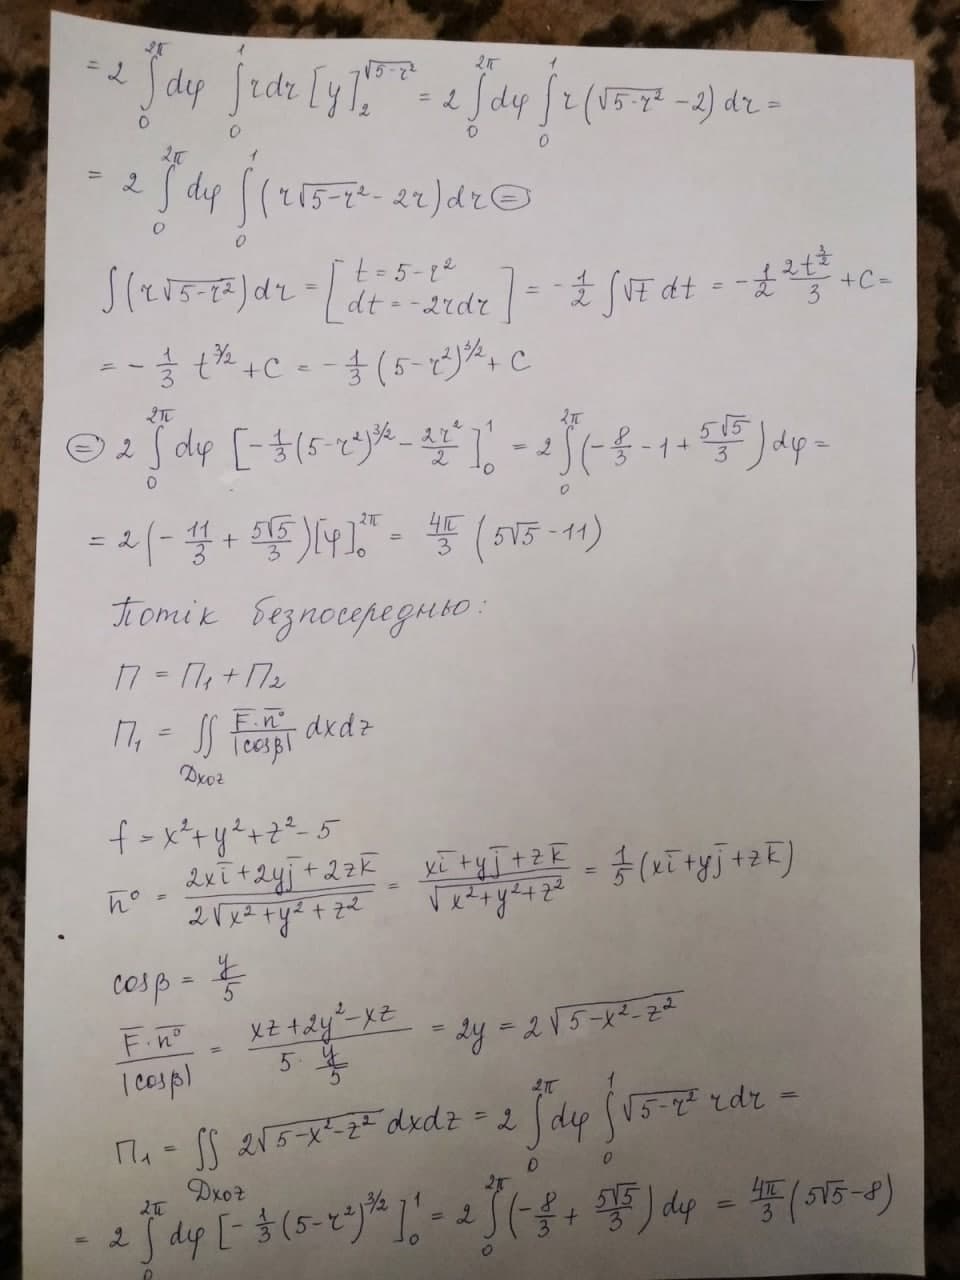 = 2 ∫₀^{2π} dφ ∫₀^1 rdr [y]₂^{√(5-r²)} = 2 ∫₀^{2π} dφ ∫₀^1 r(√(5-r²) - 2) dr =
= 2 ∫₀^{2π} dφ ∫₀^1 (r√(5-r²) - 2r) dr ⊜
∫(r√(5-r²)) dr = [t = 5-r²; dt = -2rdr] = -1/2 ∫√t dt = -1/2 · 2t^{3/2}/3 + C =
= -1/3 t^{3/2} + C = -1/3 (5-r²)^{3/2} + C
⊜ 2 ∫₀^{2π} dφ [-1/3 (5-r²)^{3/2} - 2r²/2]₀^1 = 2 ∫₀^{2π} (-8/3 - 1 + 5√5/3) dφ =
= 2(-11/3 + 5√5/3)[φ]₀^{2π} = 4π/3 (5√5 - 11)
Потік безпосередньо:
П = П₁ + П₂
П₁ = ∬_{Dxoz} F̄·n̄°/|cosβ| dxdz
f = x² + y² + z² - 5
n̄° = (2xī + 2yj̄ + 2zk̄)/(2√(x²+y²+z²)) = (xī + yj̄ + zk̄)/√(x²+y²+z²) = 1/5 (xī + yj̄ + zk̄)
cosβ = y/5
F̄·n̄°/|cosβ| = (xz + 2y² - xz)/(5·y/5) = 2y = 2√(5-x²-z²)
П₁ = ∬_{Dxoz} 2√(5-x²-z²) dxdz = 2 ∫₀^{2π} dφ ∫₀^1 √(5-r²) rdr =
= 2 ∫₀^{2π} dφ [-1/3 (5-r²)^{3/2}]₀^1 = 2 ∫₀^{2π} (-8/3 + 5√5/3) dφ = 4π/3 (5√5 - 8)